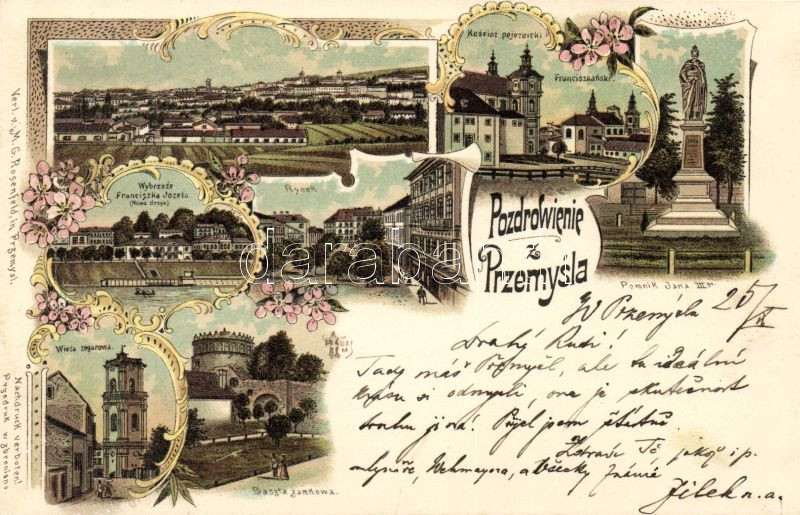 Kościoł pojezuicki
Franciszkański.
Wybrzeże
Franciszka Józefa
(Nowa droga)
Rynek
Pozdrowienie
z
Przemyśla
Pomnik Jana III go
Wieża zegarowa.
Baszta zamkowa.
Verl. v. M. G. Rosenfeld in Przemysl.
Nachdruck verboten!
Przedruk wzbroniony
darabanth
W Přemýslu 25/X
Drahý Rudi!
Tady máš Přemyšl, ale tu ideální
krásu si odmysli, ona je skutečnost
trochu jiná. Přijel jsem šťastně
Zdraví Tě jakož i p.
mlynáře, Wehmayera, a všecky známé
Jílek n. a.